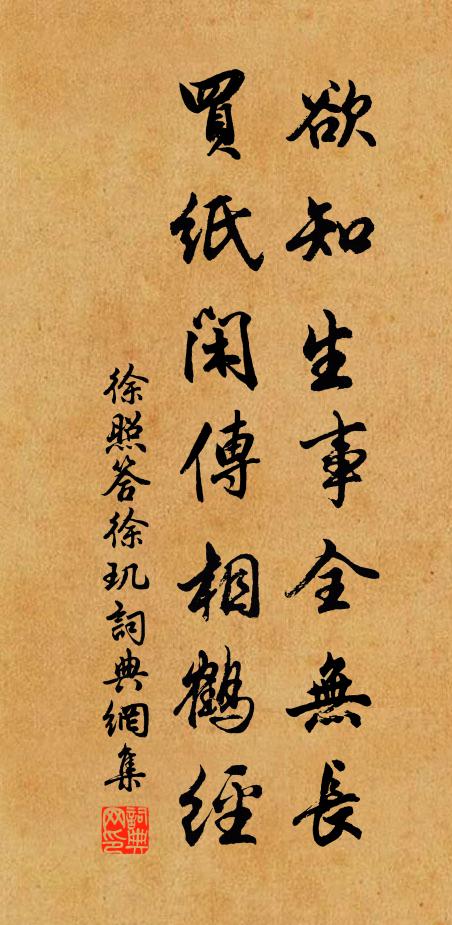 欲知生事全無長
買紙閑傳相鶴經
徐照答徐玑詞典網集
詞典
网印